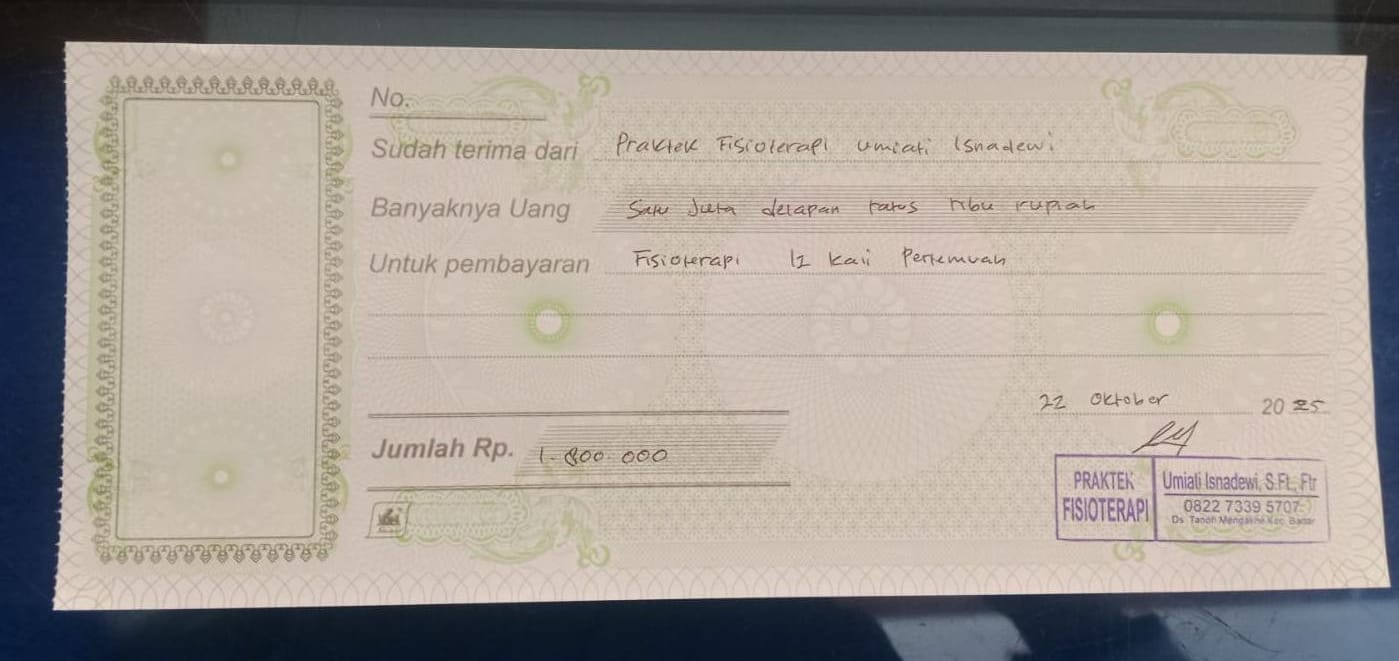 No.
Sudah terima dari Praktek Fisioterapi Umiati Isnadewi
Banyaknya Uang Satu Juta delapan ratus ribu rupiah
Untuk pembayaran Fisioterapi 12 kali Pertemuan
22 Oktober 2025
Jumlah Rp. 1.800.000
PRAKTEK FISIOTERAPI
Umiati Isnadewi, S.Ft., Ftr
0822 7339 5707
Ds. Tanoh Mengakhe Kec. Badar